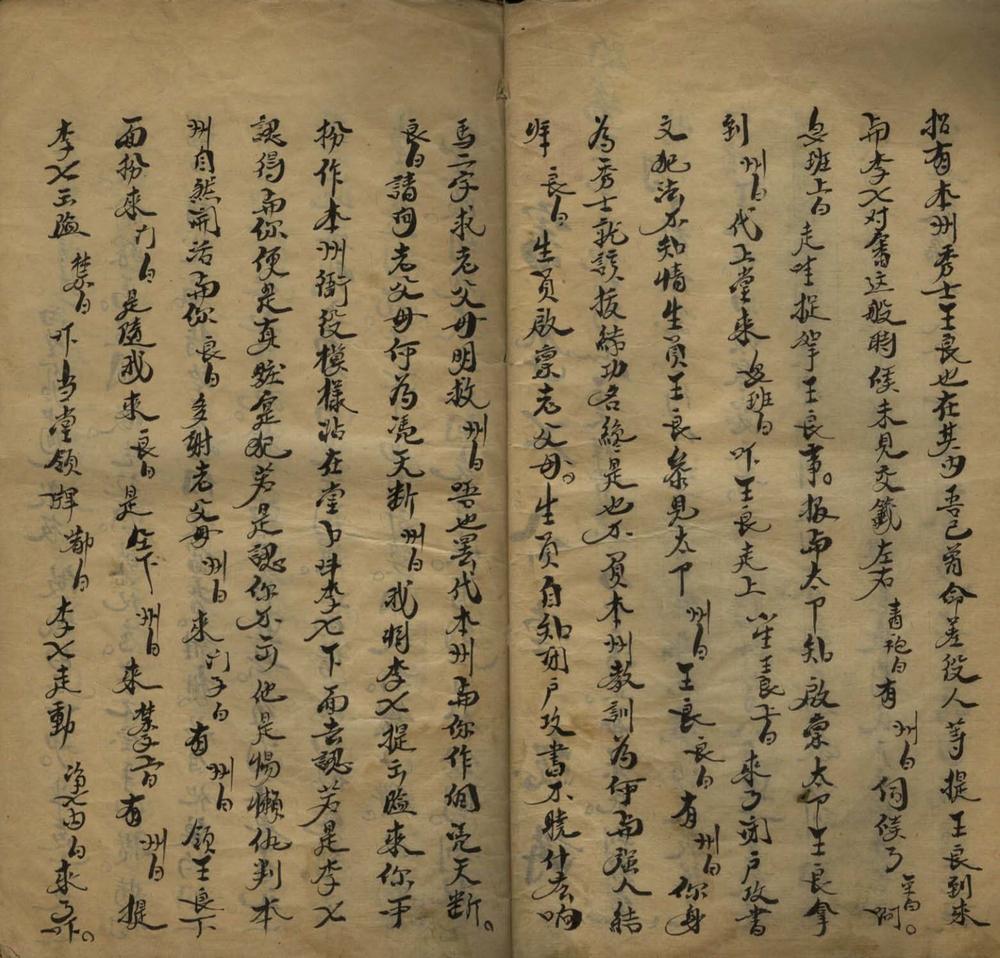 招有本州秀士王良也在其内吾已曾命差役人等提王良到來
而李七对審这般時候未見交籤左右青袍白有州白伺候了宅白啊
皂班上白走哇捉拏王良事报而太爷知啟禀太爷王良拿
到州白代上堂來皂班白吓王良走上小生王良上白來了闭戶攻書
文犯法不知情生員王良叅見太爷州白王良良白有州白你身
為秀士就該拔綀功名終是也不負本州教訓為何而强人結
伴良白生員啟禀老父母生員自知闭戶攻書不曉什広响
馬二字求老父母明救州白唔也罢代本州而你作個凭天断
良白請问老父母何為凭天断州白我將李七提云監來你
扮作本州衙役模樣站在堂上呌李七下面去認若是李七
認得而你便是真賍寔犯若是認你不而他是惕懶仇判本
州自然開活而你良白多謝老父母州白來门子白有州白領王良下
面扮來门白是隨我來良白是全下州白來禁子白有州白提
李七云監禁白吓当堂領牌鄒白李七走動净七内白來了下